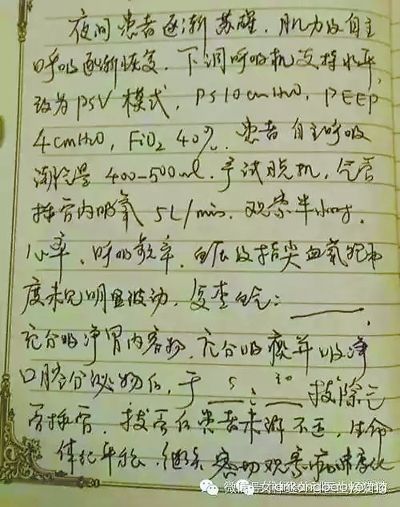 夜间患者逐渐苏醒，肌力及自主
呼吸逐渐恢复，下调呼吸机支持水平，
改为PSV模式，PS 10cmH2O，PEEP
4cmH2O，FiO2 40%，患者自主呼吸
潮气量 400-500ml，予试脱机，气管
插管内吸氧 5L/min，观察半小时，
心率、呼吸频率、血压及指尖血氧饱和
度未见明显波动，复查血气：____，
充分吸净胃内容物，充分吸痰并吸净
口腔分泌物后，于 5:30 拔除气
管插管，拔管后患者未诉不适，生命
体征平稳，继续密切观察病情变化